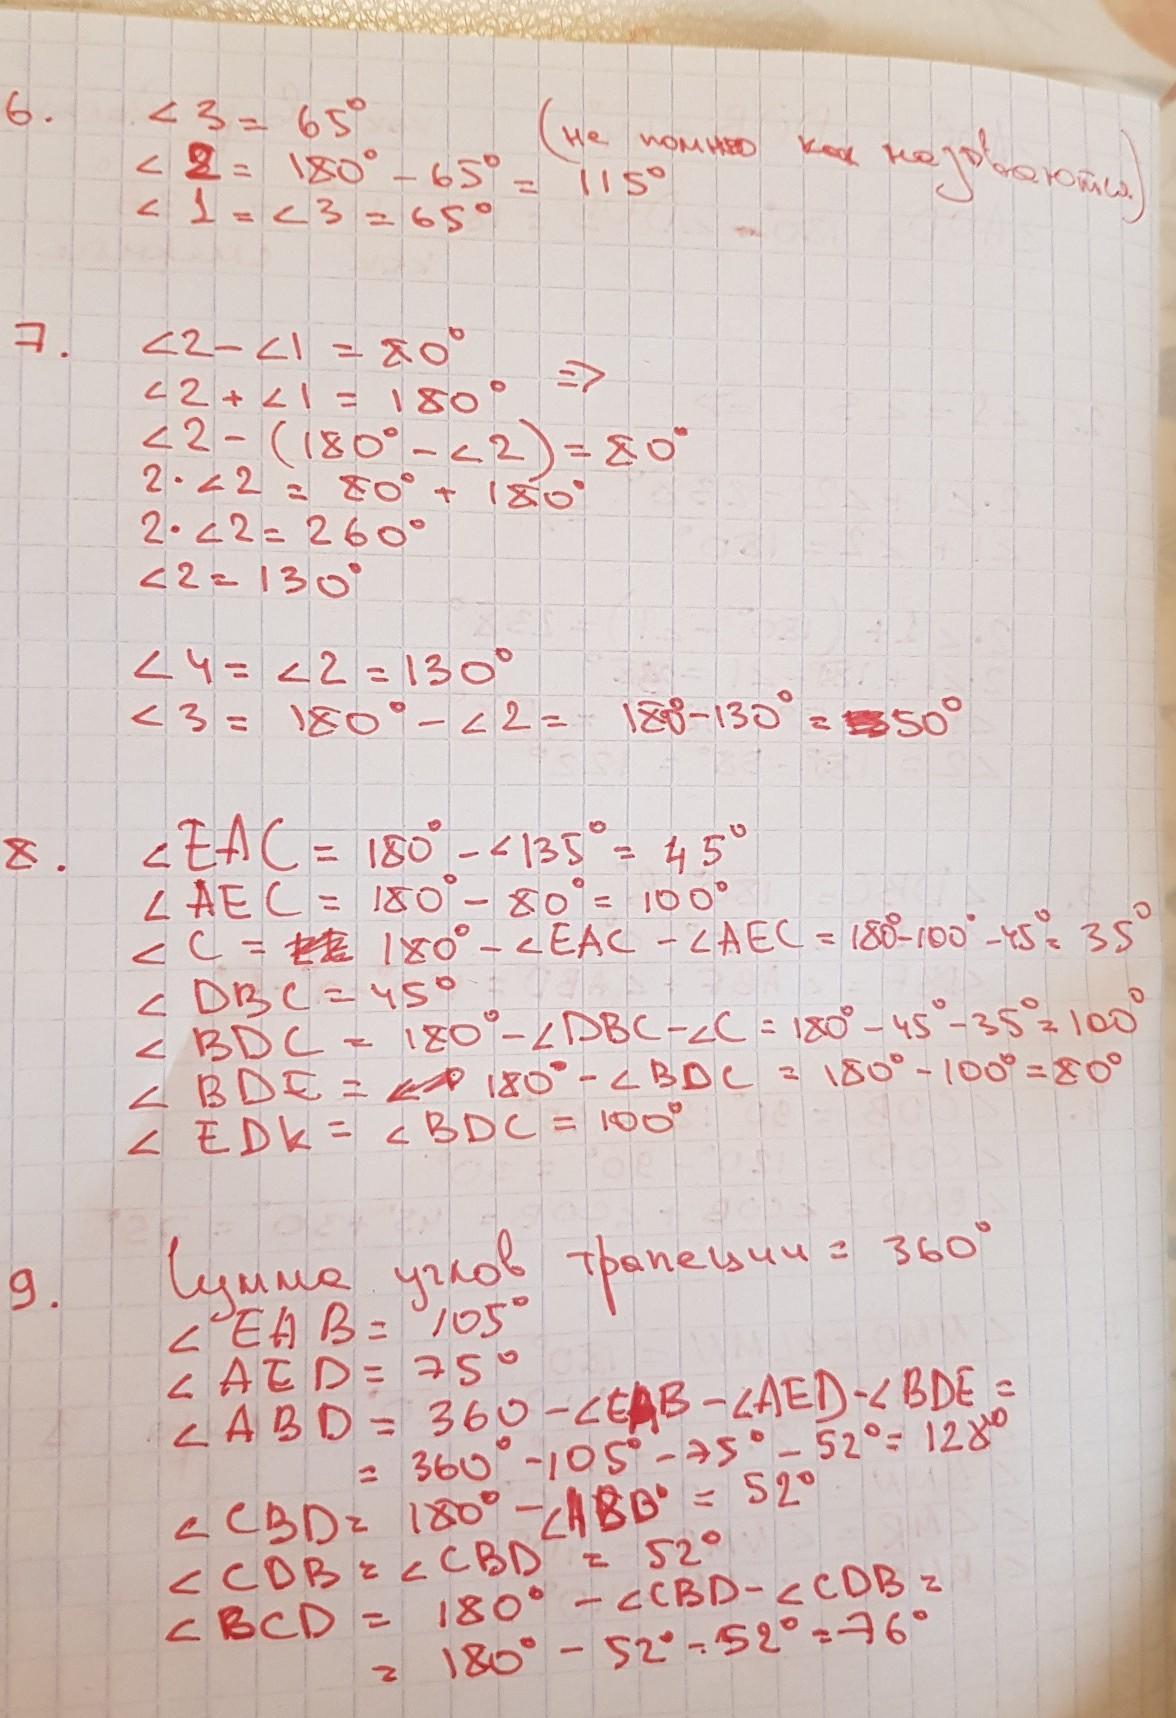 6. ∠3 = 65° (не помню как называются)
∠2 = 180° - 65° = 115°
∠1 = ∠3 = 65°
7. ∠2 - ∠1 = 80°
∠2 + ∠1 = 180° =>
∠2 - (180° - ∠2) = 80°
2·∠2 = 80° + 180°
2·∠2 = 260°
∠2 = 130°
∠4 = ∠2 = 130°
∠3 = 180° - ∠2 = 180° - 130° = 50°
8. ∠EAC = 180° - ∠135° = 45°
∠AEC = 180° - 80° = 100°
∠C = 180° - ∠EAC - ∠AEC = 180° - 100° - 45° = 35°
∠DBC = 45°
∠BDC = 180° - ∠DBC - ∠C = 180° - 45° - 35° = 100°
∠BDE = 180° - ∠BDC = 180° - 100° = 80°
∠EDK = ∠BDC = 100°
9. Сумма углов трапеции = 360°
∠EAB = 105°
∠AED = 75°
∠ABD = 360 - ∠EAB - ∠AED - ∠BDE =
= 360° - 105° - 75° - 52° = 128°
∠CBD = 180° - ∠ABD = 52°
∠CDB = ∠CBD = 52°
∠BCD = 180° - ∠CBD - ∠CDB =
= 180° - 52° - 52° = 76°